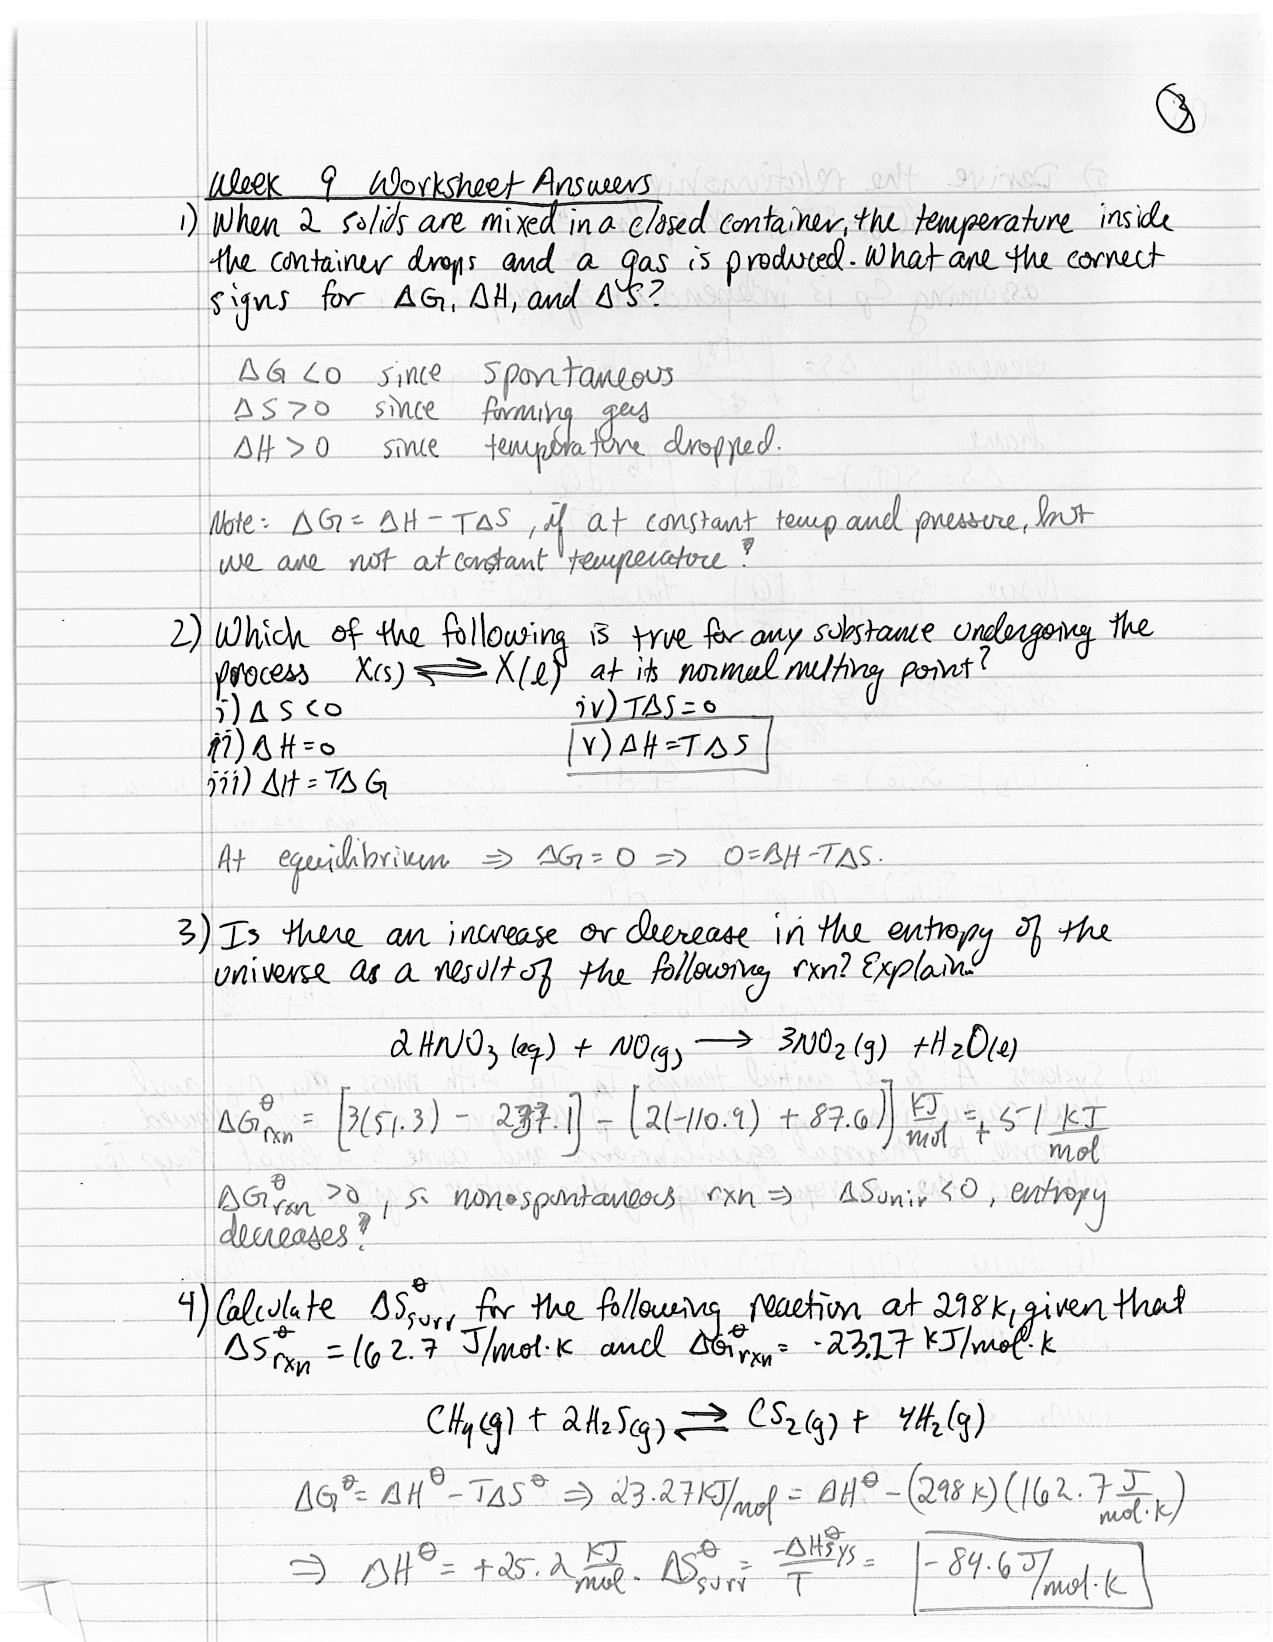 3
Week 9 Worksheet Answers
1) When 2 solids are mixed in a closed container, the temperature inside
the container drops and a gas is produced. What are the correct
signs for ΔG, ΔH, and ΔS?
ΔG <0 since spontaneous
ΔS >0 since forming gas
ΔH >0 since temperature dropped.
Note: ΔG = ΔH - TΔS, if at constant temp and pressure, but
we are not at constant temperature?
2) Which of the following is true for any substance undergoing the
process X(s) ⇌ X(l) at its normal melting point?
i) ΔS<0 iv) TΔS=0
ii) ΔH=0 v) ΔH=TΔS
iii) ΔH = TΔG
At equilibrium ⇒ ΔG = 0 ⇒ 0=ΔH-TΔS.
3) Is there an increase or decrease in the entropy of the
universe as a result of the following rxn? Explain.
2HNO3 (aq) + NO(g) → 3NO2(g) + H2O(l)
ΔG°rxn = [3(51.3) - 237.1] - [2(-110.9) + 87.6] kJ/mol = +51 kJ/mol
ΔG°rxn >0, so nonspontaneous rxn ⇒ ΔSuniv <0, entropy
decreases?
4) Calculate ΔS°surr for the following reaction at 298K, given that
ΔS°rxn = 162.7 J/mol·K and ΔG°rxn = -23.27 kJ/mol·K
CH4(g) + 2H2S(g) ⇌ CS2(g) + 4H2(g)
ΔG° = ΔH° - TΔS° ⇒ 23.27KJ/mol = ΔH° - (298K)(162.7 J/mol·K)
⇒ ΔH° = +25.2 KJ/mol. ΔS°surr = -ΔH°sys/T = -84.6 J/mol·K